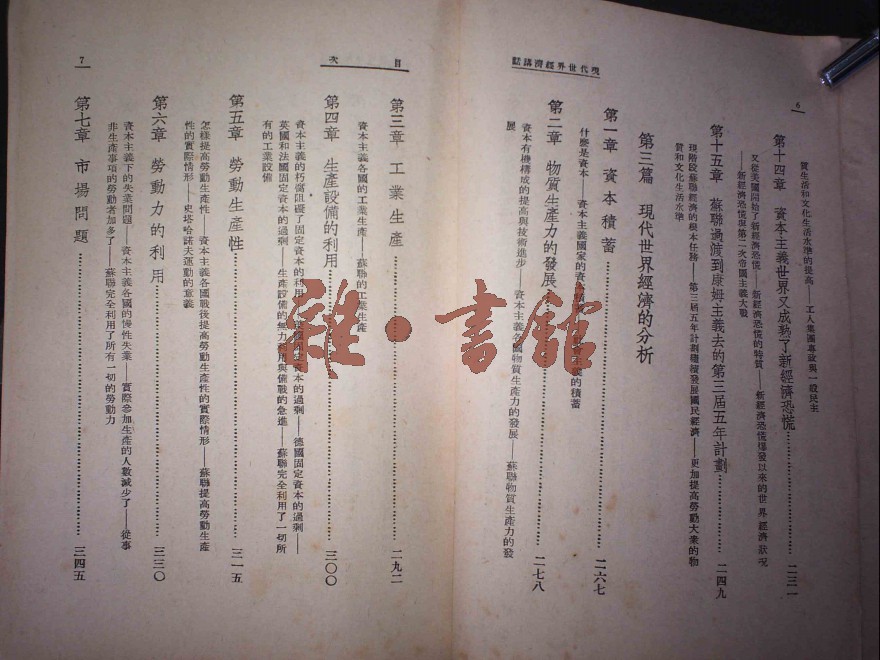 現代世界經濟講話
6
質生活和文化生活水準的提高——工人集團專政與一般民主
第十四章 資本主義世界又成熟了新經濟恐慌 二三一
又從美國開始了新經濟恐慌——新經濟恐慌的特質——新經濟恐慌爆發以來的世界經濟狀況
——新經濟恐慌與第二次帝國主義大戰
第十五章 蘇聯過渡到康姆主義去的第三屆五年計劃 二四九
現階段蘇聯經濟的根本任務——第三屆五年計劃繼續發展國民經濟——更加提高勞動大衆的物
質和文化生活水準
第三篇 現代世界經濟的分析
第一章 資本積蓄 二六七
什麼是資本——資本主義國家的資 的積蓄
第二章 物質生產力的發展 二七八
資本有機構成的提高與技術進步——資本主義各國物質生產力的發展——蘇聯物質生產力的發
展
目次
7
第三章 工業生產 二九二
資本主義各國的工業生產——蘇聯的工業生產
第四章 生產設備的利用 三〇〇
資本主義的朽腐阻礙了固定資本的利用 固定資本的過剩——德國固定資本的過剩——
英國和法國固定資本的過剩——生產設備的無力利用與備戰的急進——蘇聯完全利用了一切所
有的工業設備
第五章 勞動生產性 三一五
怎樣提高勞動生產性——資本主義各國戰後提高勞動生產性的實際情形——蘇聯提高勞動生產
性的實際情形——史塔哈諾夫運動的意義
第六章 勞動力的利用 三三〇
資本主義下的失業問題——資本主義各國的慢性失業——實際參加生產的人數減少了——從事
非生產事項的勞動者加多了——蘇聯完全利用了所有一切的勞動力
第七章 市場問題 三四五
雜·書館